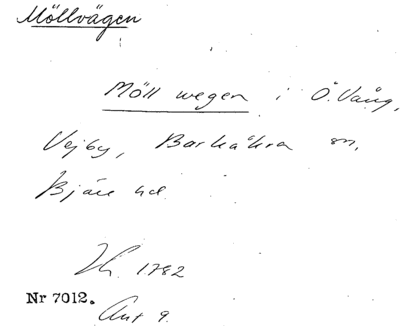 Möllvägen
Möll wegen i Ö. Vång,
Vejby, Barkåkra sn,
Bjäre hd
1782
Nr 7012.
Akt 9